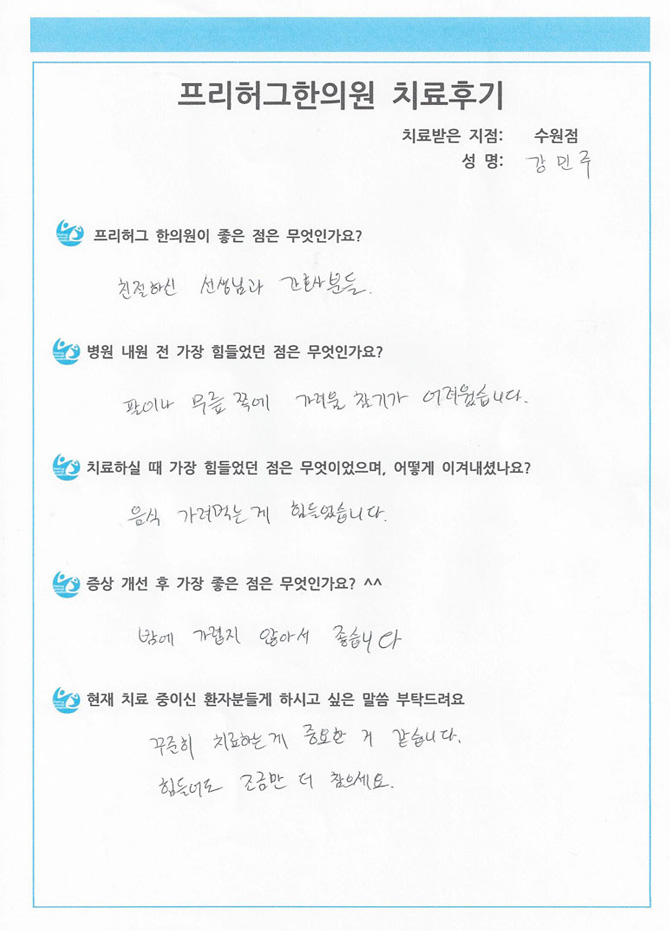 프리허그한의원 치료후기
치료받은 지점: 수원점
성 명: 강민주
프리허그 한의원이 좋은 점은 무엇인가요?
친절하신 선생님과 간호사분들.
병원 내원 전 가장 힘들었던 점은 무엇인가요?
팔이나 무릎 쪽에 가려움 참기가 어려웠습니다.
치료하실 때 가장 힘들었던 점은 무엇이었으며, 어떻게 이겨내셨나요?
음식 가려먹는게 힘들었습니다.
증상 개선 후 가장 좋은 점은 무엇인가요? ^^
밤에 가렵지 않아서 좋습니다
현재 치료 중이신 환자분들게 하시고 싶은 말씀 부탁드려요
꾸준히 치료하는게 중요한 거 같습니다.
힘들어도 조금만 더 참으세요.